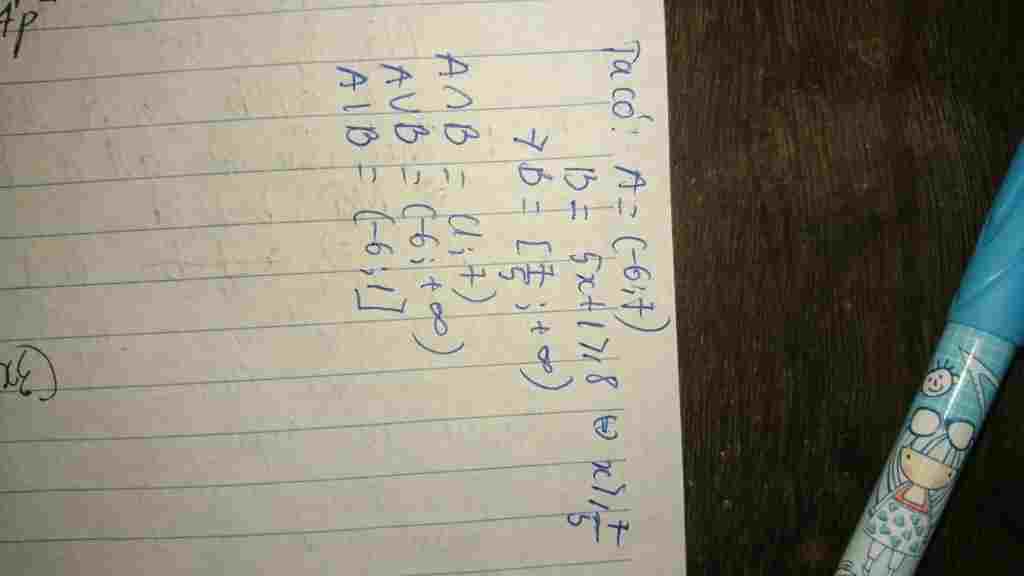 Ta có: A = (-6;7)
B = 5x+1 ≥ 8 ⇔ x ≥ 7/5
→ B = [7/5 ; +∞)
A ∩ B = (1;7)
A ∪ B = (-6;+∞)
A \ B = (-6;1]
(3x